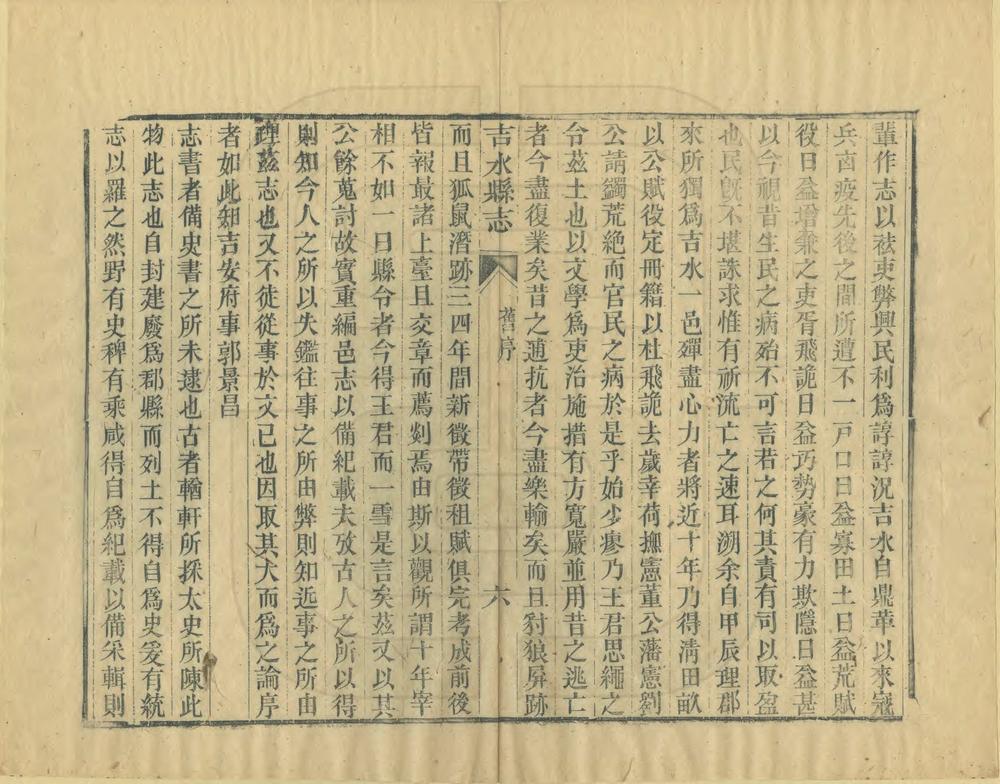 輩作志以袪吏弊興民利爲諄諄況吉水自鼎革以來冦
兵凶疫先後之間所遭不一戸口日益寡田土日益荒賦
役日益增兼之吏胥飛詭日益巧勢豪有力欺隱日益甚
以今視昔生民之病殆不可言若之何其責有司以取盈
也民旣不堪誅求惟有祈流亡之速耳溯余自甲辰理郡
來所獨爲吉水一邑殫盡心力者將近十年乃得淸田畝
以公賦役定冊籍以杜飛詭去歲幸荷撫憲董公藩憲劉
公請蠲荒絶而官民之病於是乎始少瘳乃王君思繩之
令茲土也以文學爲吏治施措有方寬嚴並用昔之逃亡
者今盡復業矣昔之逋抗者今盡樂輸矣而且豺狼屏跡
吉水縣志
舊序
六
而且狐鼠潛跡三四年間新徵帶徵租賦俱完考成前後
皆報最諸上臺且交章而薦剡焉由斯以觀所謂十年宰
相不如一日縣令者今得王君而一雪是言矣茲又以其
公餘蒐討故實重編邑志以備紀載夫攷古人之所以得
則知今人之所以失鑑往事之所由弊則知近事之所由
理茲志也又不徒從事於文已也因取其大而爲之論序
者如此知吉安府事郭景昌
志書者備史書之所未逮也古者輶軒所採太史所陳此
物此志也自封建廢爲郡縣而列土不得自爲史爰有統
志以羅之然野有史稗有乘咸得自爲紀載以備采輯則